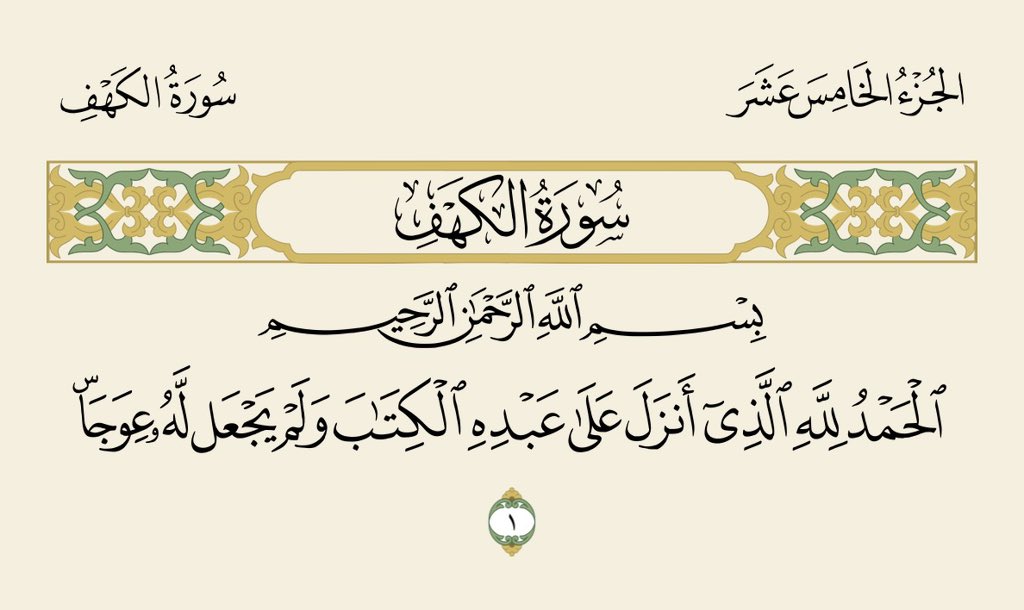 الجُزْءُ الخَامِسَ عَشَرَ
سُورَةُ الكَهْفِ
سُورَةُ الكَهْفِ
بِسْمِ ٱللَّهِ ٱلرَّحْمَٰنِ ٱلرَّحِيمِ
ٱلْحَمْدُ لِلَّهِ ٱلَّذِىٓ أَنزَلَ عَلَىٰ عَبْدِهِ ٱلْكِتَٰبَ وَلَمْ يَجْعَل لَّهُۥ عِوَجَاۜ
١